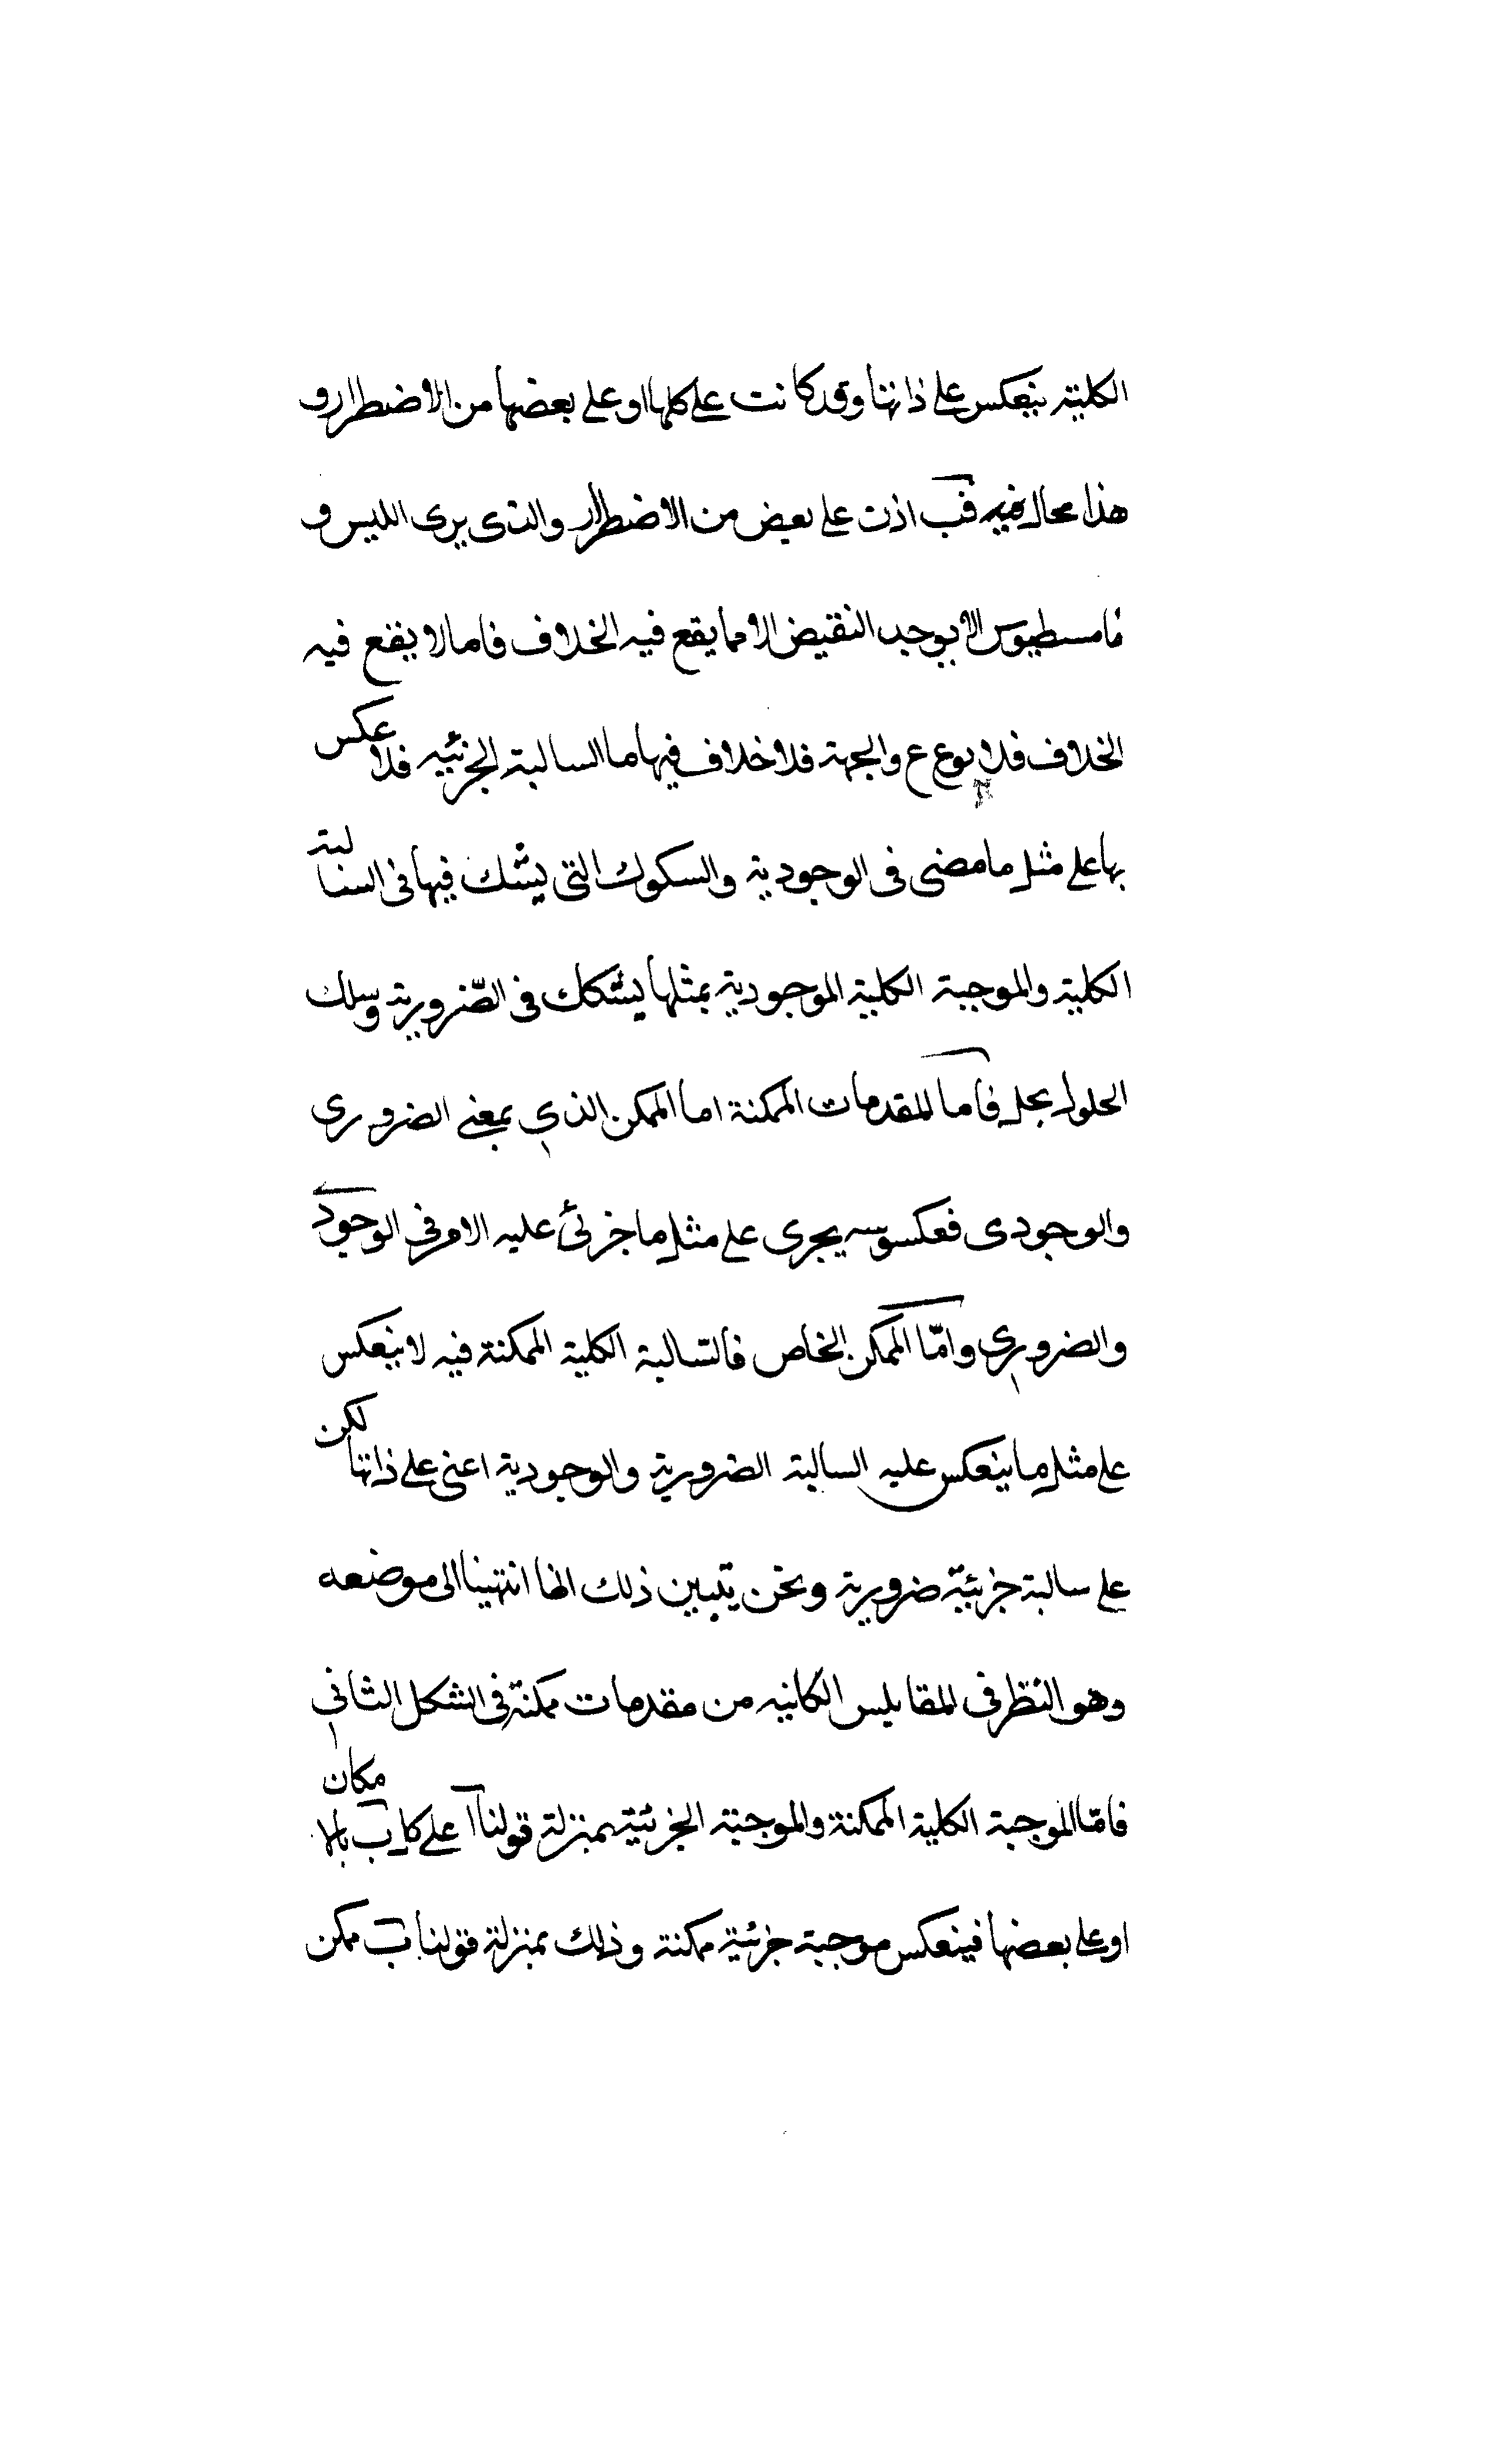 الكلية ينعكس على ذاتها وقد كانت على كلها او على بعضها من الاضطرار و
هذا محال فيه فب اذن على بعض من الاضطرار والذى يرى اللبس و
ثامسطيوس الا يوجد النقيض الا مما يقع فيه الخلاف فاما لا يقع فيه
الخلاف فلا والجهة فلا خلاف فيها ما السالبة الجزئيه فلا عكس
بها على مثل ما مضى فى الوجودية والسكوك التى يشك فيها فى السالبة
الكلية والموجبة الكلية الموجودية بمثلها يشكك فى الضرورية وسلك
الحلول بحل فاما المقدمات الممكنة اما الممكن الذي بمعنى الضرورى
والوجودى فعكسوسه يجرى على مثل ما جزئ عليه الامر فى الوجود
والضروري وامّا الممكن الخاص فالسّالبة الكلية الممكنة فيه لا ينعكس
على مثل ما ينعكس عليه السالبة الضرورية والوجودية اعنى على ذاتها لكن
على سالبة جزئية ضرورية ونحن يتبين ذلك اذا انتهينا الى موضعه
وهو النظر فى المقايس الكانيه من مقدمات ممكنة فى الشكل الثاني
فامّا الموجبة الكلية الممكنة والموجبة الجزئية بمنزلة قولنا آ على كل ب بالامكان
او على بعضها فينعكس موجبة جزئية ممكنة وذلك بمنزلة قولنا ب ممكن